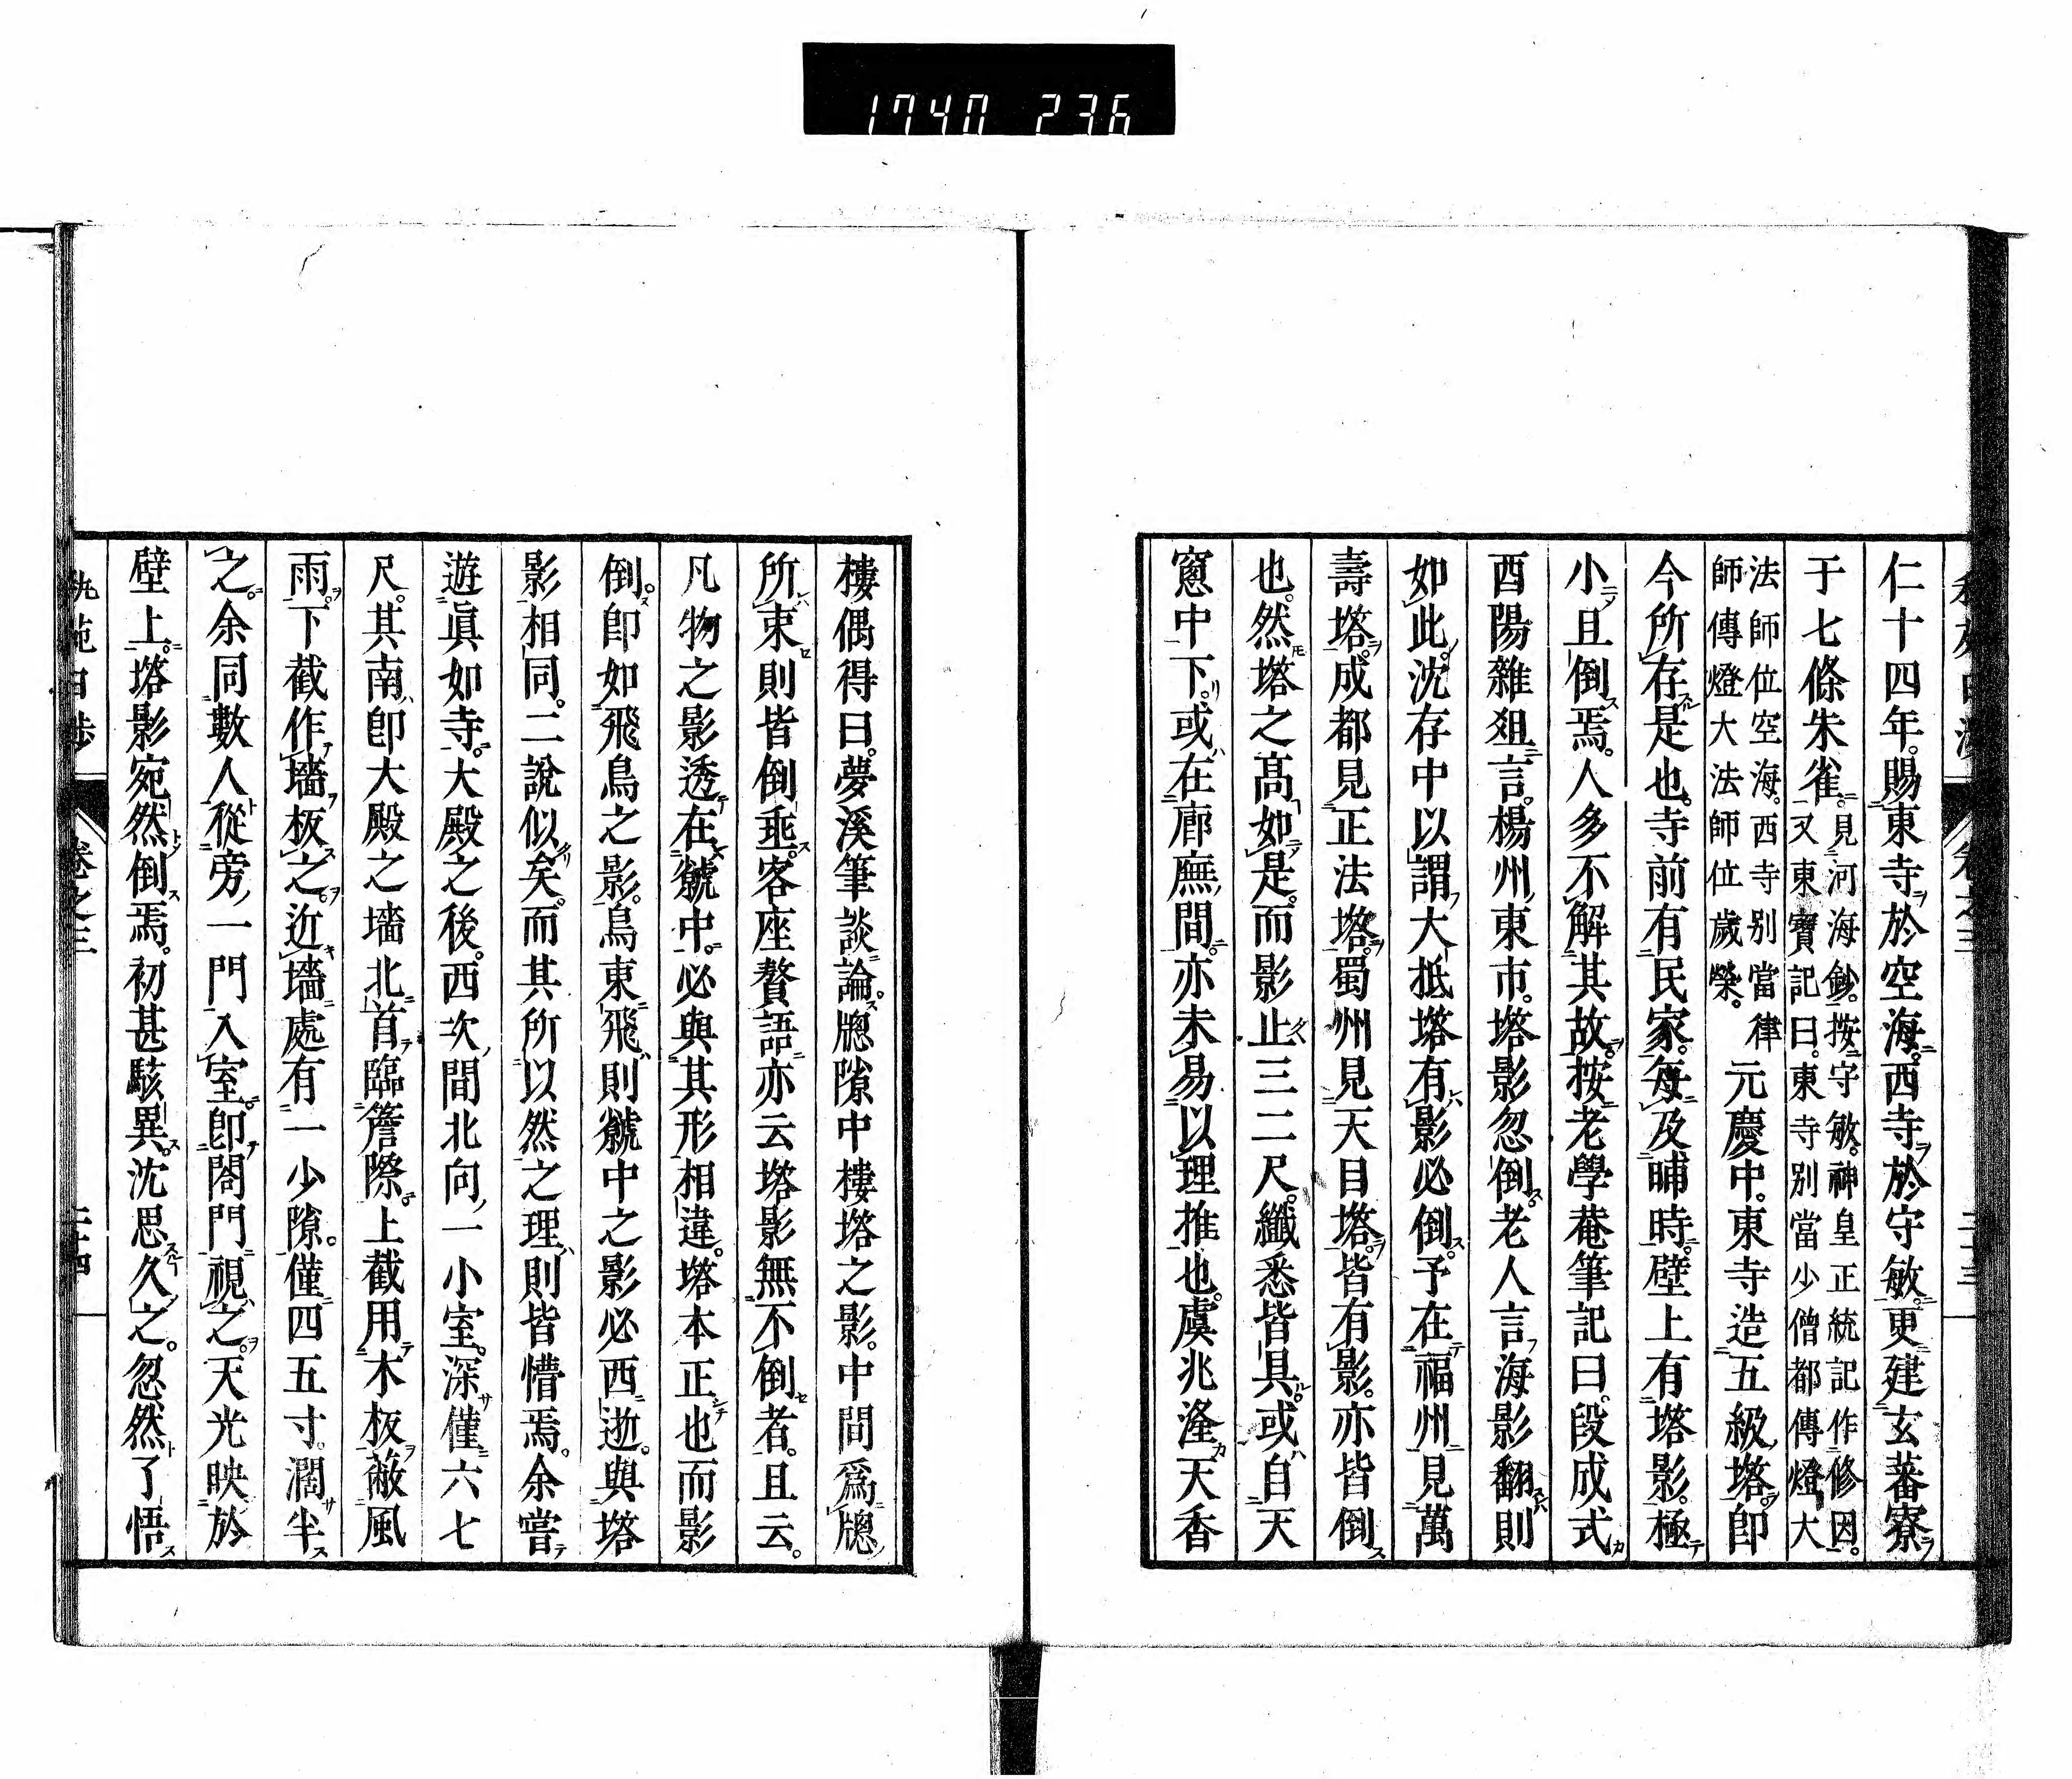 1740 236
仁十四年。賜東寺於空海。西寺於守敏。更建玄蕃寮
于七條朱雀。見河海鈔。按守敏。神皇正統記作修因。
又東寶記曰。東寺別當少僧都傳燈大
法師位空海。西寺別當律
師傳燈大法師位歲榮。元慶中。東寺造五級塔。卽
今所存是也。寺前有民家。每及晡時。壁上有塔影。極
小且倒焉。人多不解其故。按老學菴筆記曰。段成式
酉陽雜爼言。楊州東市。塔影忽倒。老人言海影翻則
如此。沈存中以謂大抵塔有影必倒。予在福州見萬
壽塔。成都見正法塔。蜀州見天目塔。皆有影。亦皆倒
也。然塔之高如是。而影止三二尺。纖悉皆具。或自天
窻中下。或在廊廡間。亦未易以理推也。虞兆漋天香
卷之三
樓偶得曰。夢溪筆談論。牕隙中樓塔之影。中間爲牕
所束則皆倒垂。客座贅語亦云塔影無不倒者。且云。
凡物之影透在虩中。必與其形相違。塔本正也而影
倒。卽如飛鳥之影。鳥東飛則虩中之影必西逝。與塔
影相同。二說似矣。而其所以然之理則皆懵焉。余嘗
遊眞如寺。大殿之後。西次間北向一小室。深僅六七
尺。其南卽大殿之墻北首臨簷際。上截用木板蔽風
雨。下截作墻板之。近墻處有一少隙。僅四五寸。濶半
之。余同數人從旁一門入室。卽閤門視之。天光映於
壁上。塔影宛然倒焉。初甚駭異。沈思久之。忽然了悟
卷之三
二十四